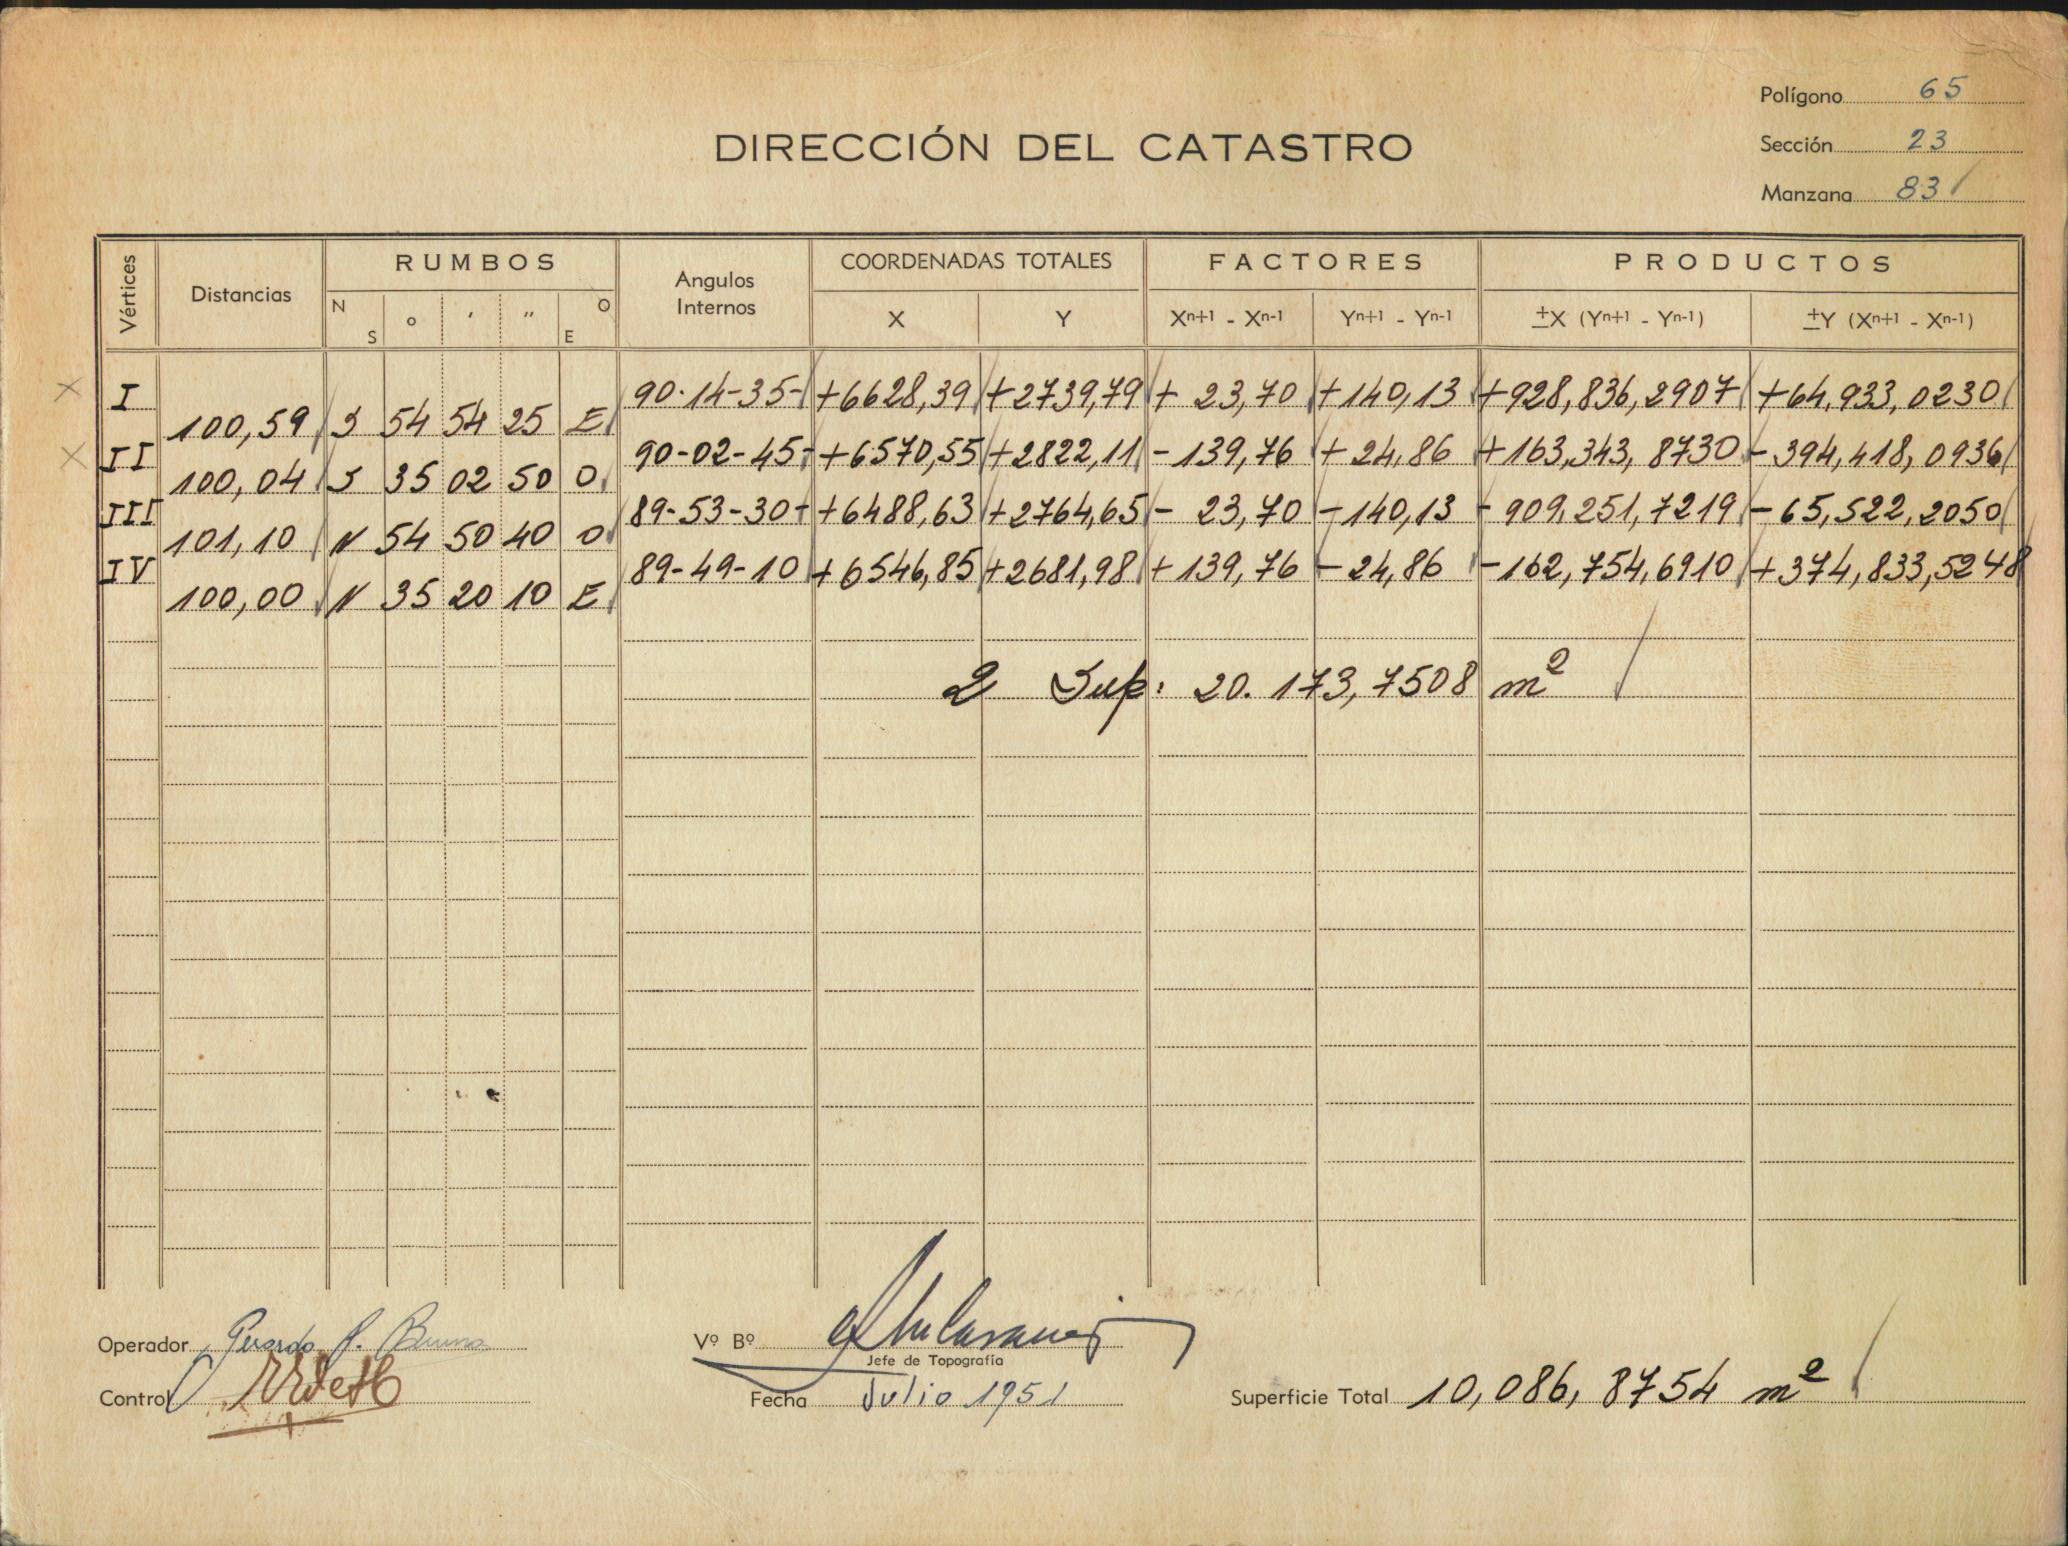 Polígono 65
DIRECCIÓN DEL CATASTRO
Sección 23
Manzana 83
Vértices Distancias RUMBOS Angulos Internos COORDENADAS TOTALES FACTORES PRODUCTOS
N S ° ' " O E X Y Xn+1 - Xn-1 Yn+1 - Yn-1 ±X (Yn+1 - Yn-1) ±Y (Xn+1 - Xn-1)
I 90-14-35 +6628,39 +2739,79 + 23,70 +140,13 +928,836,2907 +64,933,0230
100,59 S 54 54 25 E
II 90-02-45 +6570,55 +2822,11 -139,76 + 24,86 +163,343,8730 -394,418,0936
100,04 S 35 02 50 O
III 89-53-30 +6488,63 +2764,65 - 23,70 -140,13 -909,251,7219 -65,522,2050
101,10 N 54 50 40 O
IV 89-49-10 +6546,85 +2681,98 +139,76 -24,86 -162,754,6910 +374,833,5248
100,00 N 35 20 10 E
2 Sup: 20.173,7508 m²
Operador Gerardo
Vº Bº
Jefe de Topografía
Control
Fecha Julio 1951
Superficie Total 10,086,8754 m²